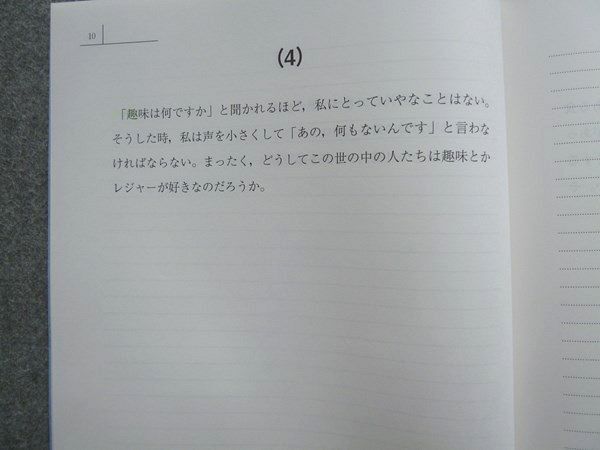 10
(4)
「趣味は何ですか」と聞かれるほど，私にとっていやなことはない。
そうした時，私は声を小さくして「あの，何もないんです」と言わな
ければならない。まったく，どうしてこの世の中の人たちは趣味とか
レジャーが好きなのだろうか。